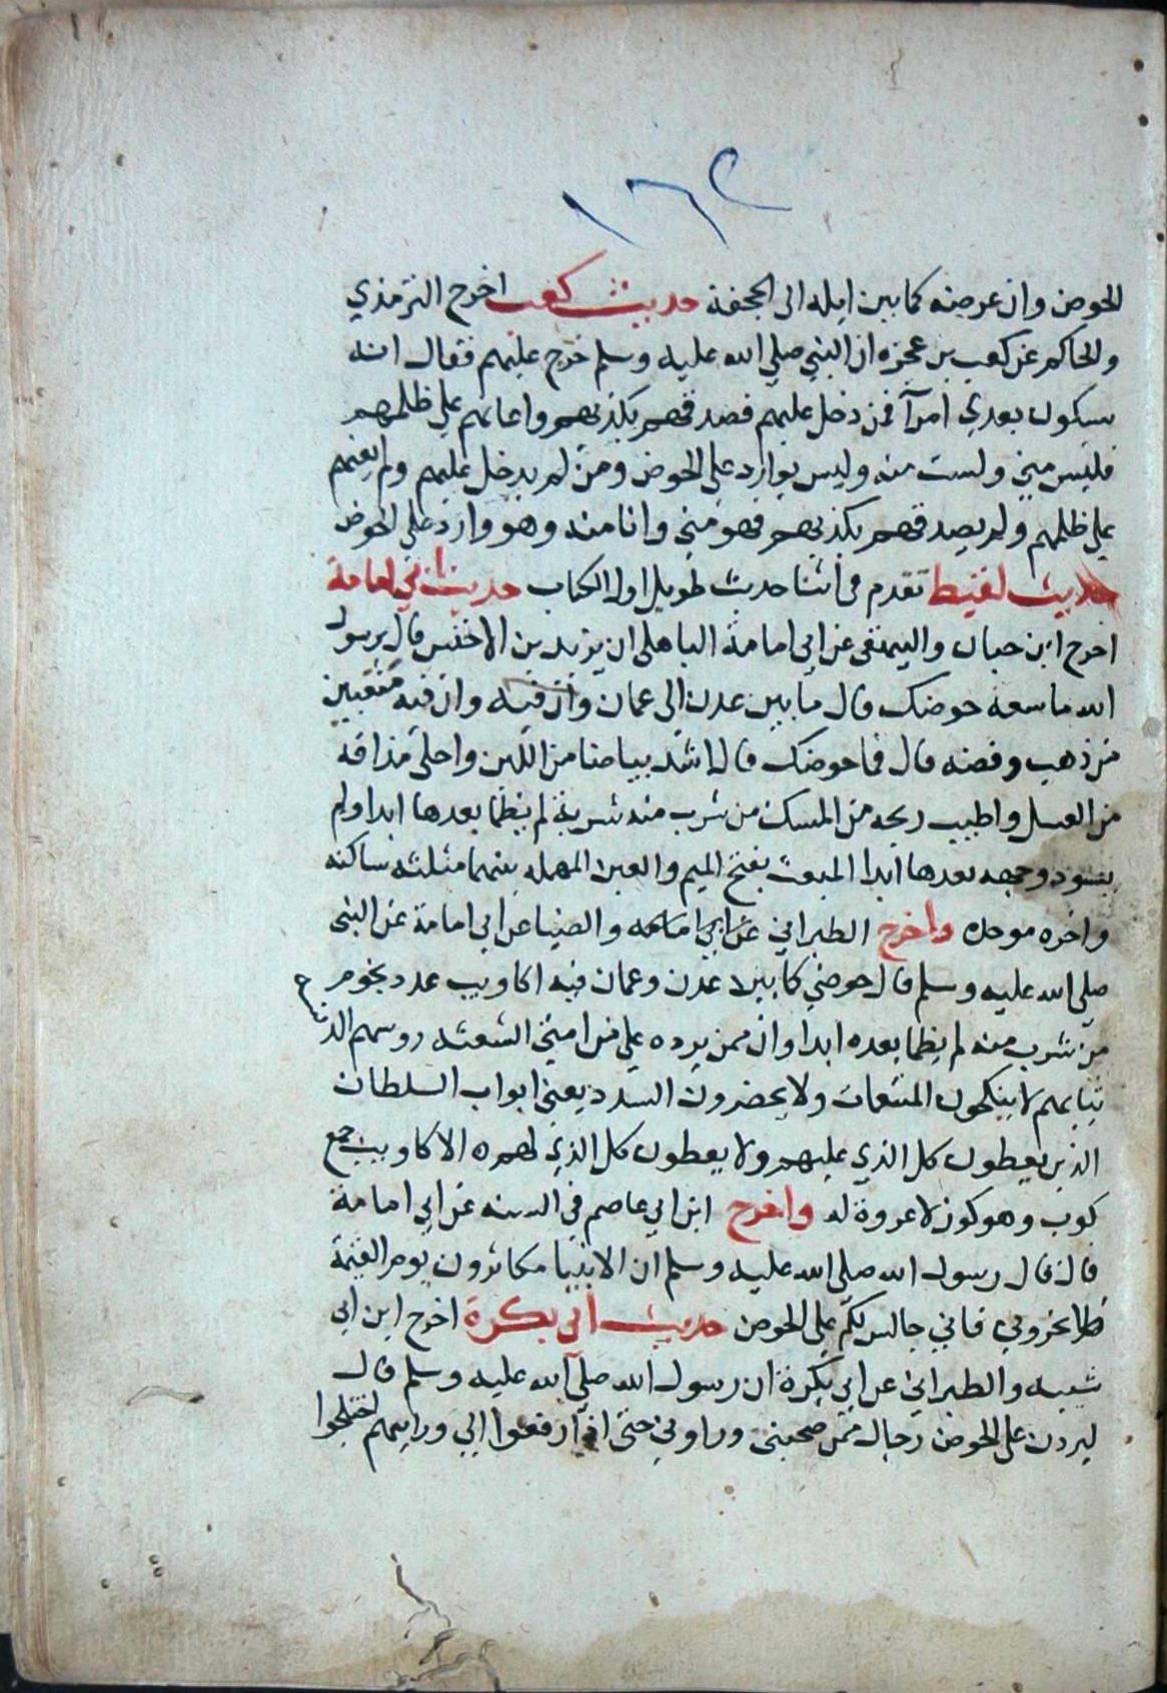 ١٦٢
الحوض وان عرضه كما بين ايله الى الجحفة حديث كعب اخرج الترمذي
والحاكم عن كعب بن عجزه ان النبي صلي الله عليه وسلم خرج عليهم فقال انه
سيكون بعدي امرآ فمن دخل عليهم فصدقهم بكذبهم واعانهم علي ظلمهم
فليس مني ولست منه وليس بوارد على الحوض ومن لم يدخل عليهم ولم يعنهم
علي ظلمهم ولم يصدقهم بكذبهم فهو مني وانا منه وهو وارد على الحوض
حديث لقيط تقدم في اثنا حديث طويل اول الكتاب حديث ابي امامة
اخرج ابن حبان والبيهقى عن ابي امامة الباهلى ان يزيد بن الاخنس قال يرسول
الله ما سعة حوضك قال ما بين عدن الي عمان وان فيه وان فيه مثعبين
من ذهب وفضه قال فما حوضك قال اشد بياضا من اللبن واحلى مذاقة
من العسل واطيب ريحه من المسك من شرب منه شربة لم يظما بعدها ابدا ولم
يسود وجهه بعدها ابدا المبعث بفتح الميم والعين المهمله بينهما مثلثه ساكنه
واخره موحده واخرج الطبراني عن ابي امامه والضيا عن ابي امامة عن النبى
صلى الله عليه وسلم قال حوضي كما بين عدن وعمان فيه اكاويب عدد نجوم
من شرب منه لم يظما بعده ابدا وان ممن يرده علي من امتي الشعثه روسهم الد
ثيابهم لا ينكحون المتنعمات ولا يحضرون السدد يعني ابواب السلطان
الذين يعطون كل الذي عليهم ولا يعطون كل الذي لهم ه الاكاويب جمع
كوب وهو كوز لا عروة له واخرج ابن ابي عاصم في السنه عن ابي امامة
قال قال رسول الله صلى الله عليه وسلم ان الانبيا مكاثرون يوم القيمة
فلا تخزوني فاني جالس لكم علي الحوض حديث ابي بكرة اخرج ابن ابي
شيبه والطبراني عن ابي بكرة ان رسول الله صلي الله عليه وسلم قال
ليردن على الحوض رجال ممن صحبنى وراوني حتى اذا رفعوا الي ورايتهم اختلجوا